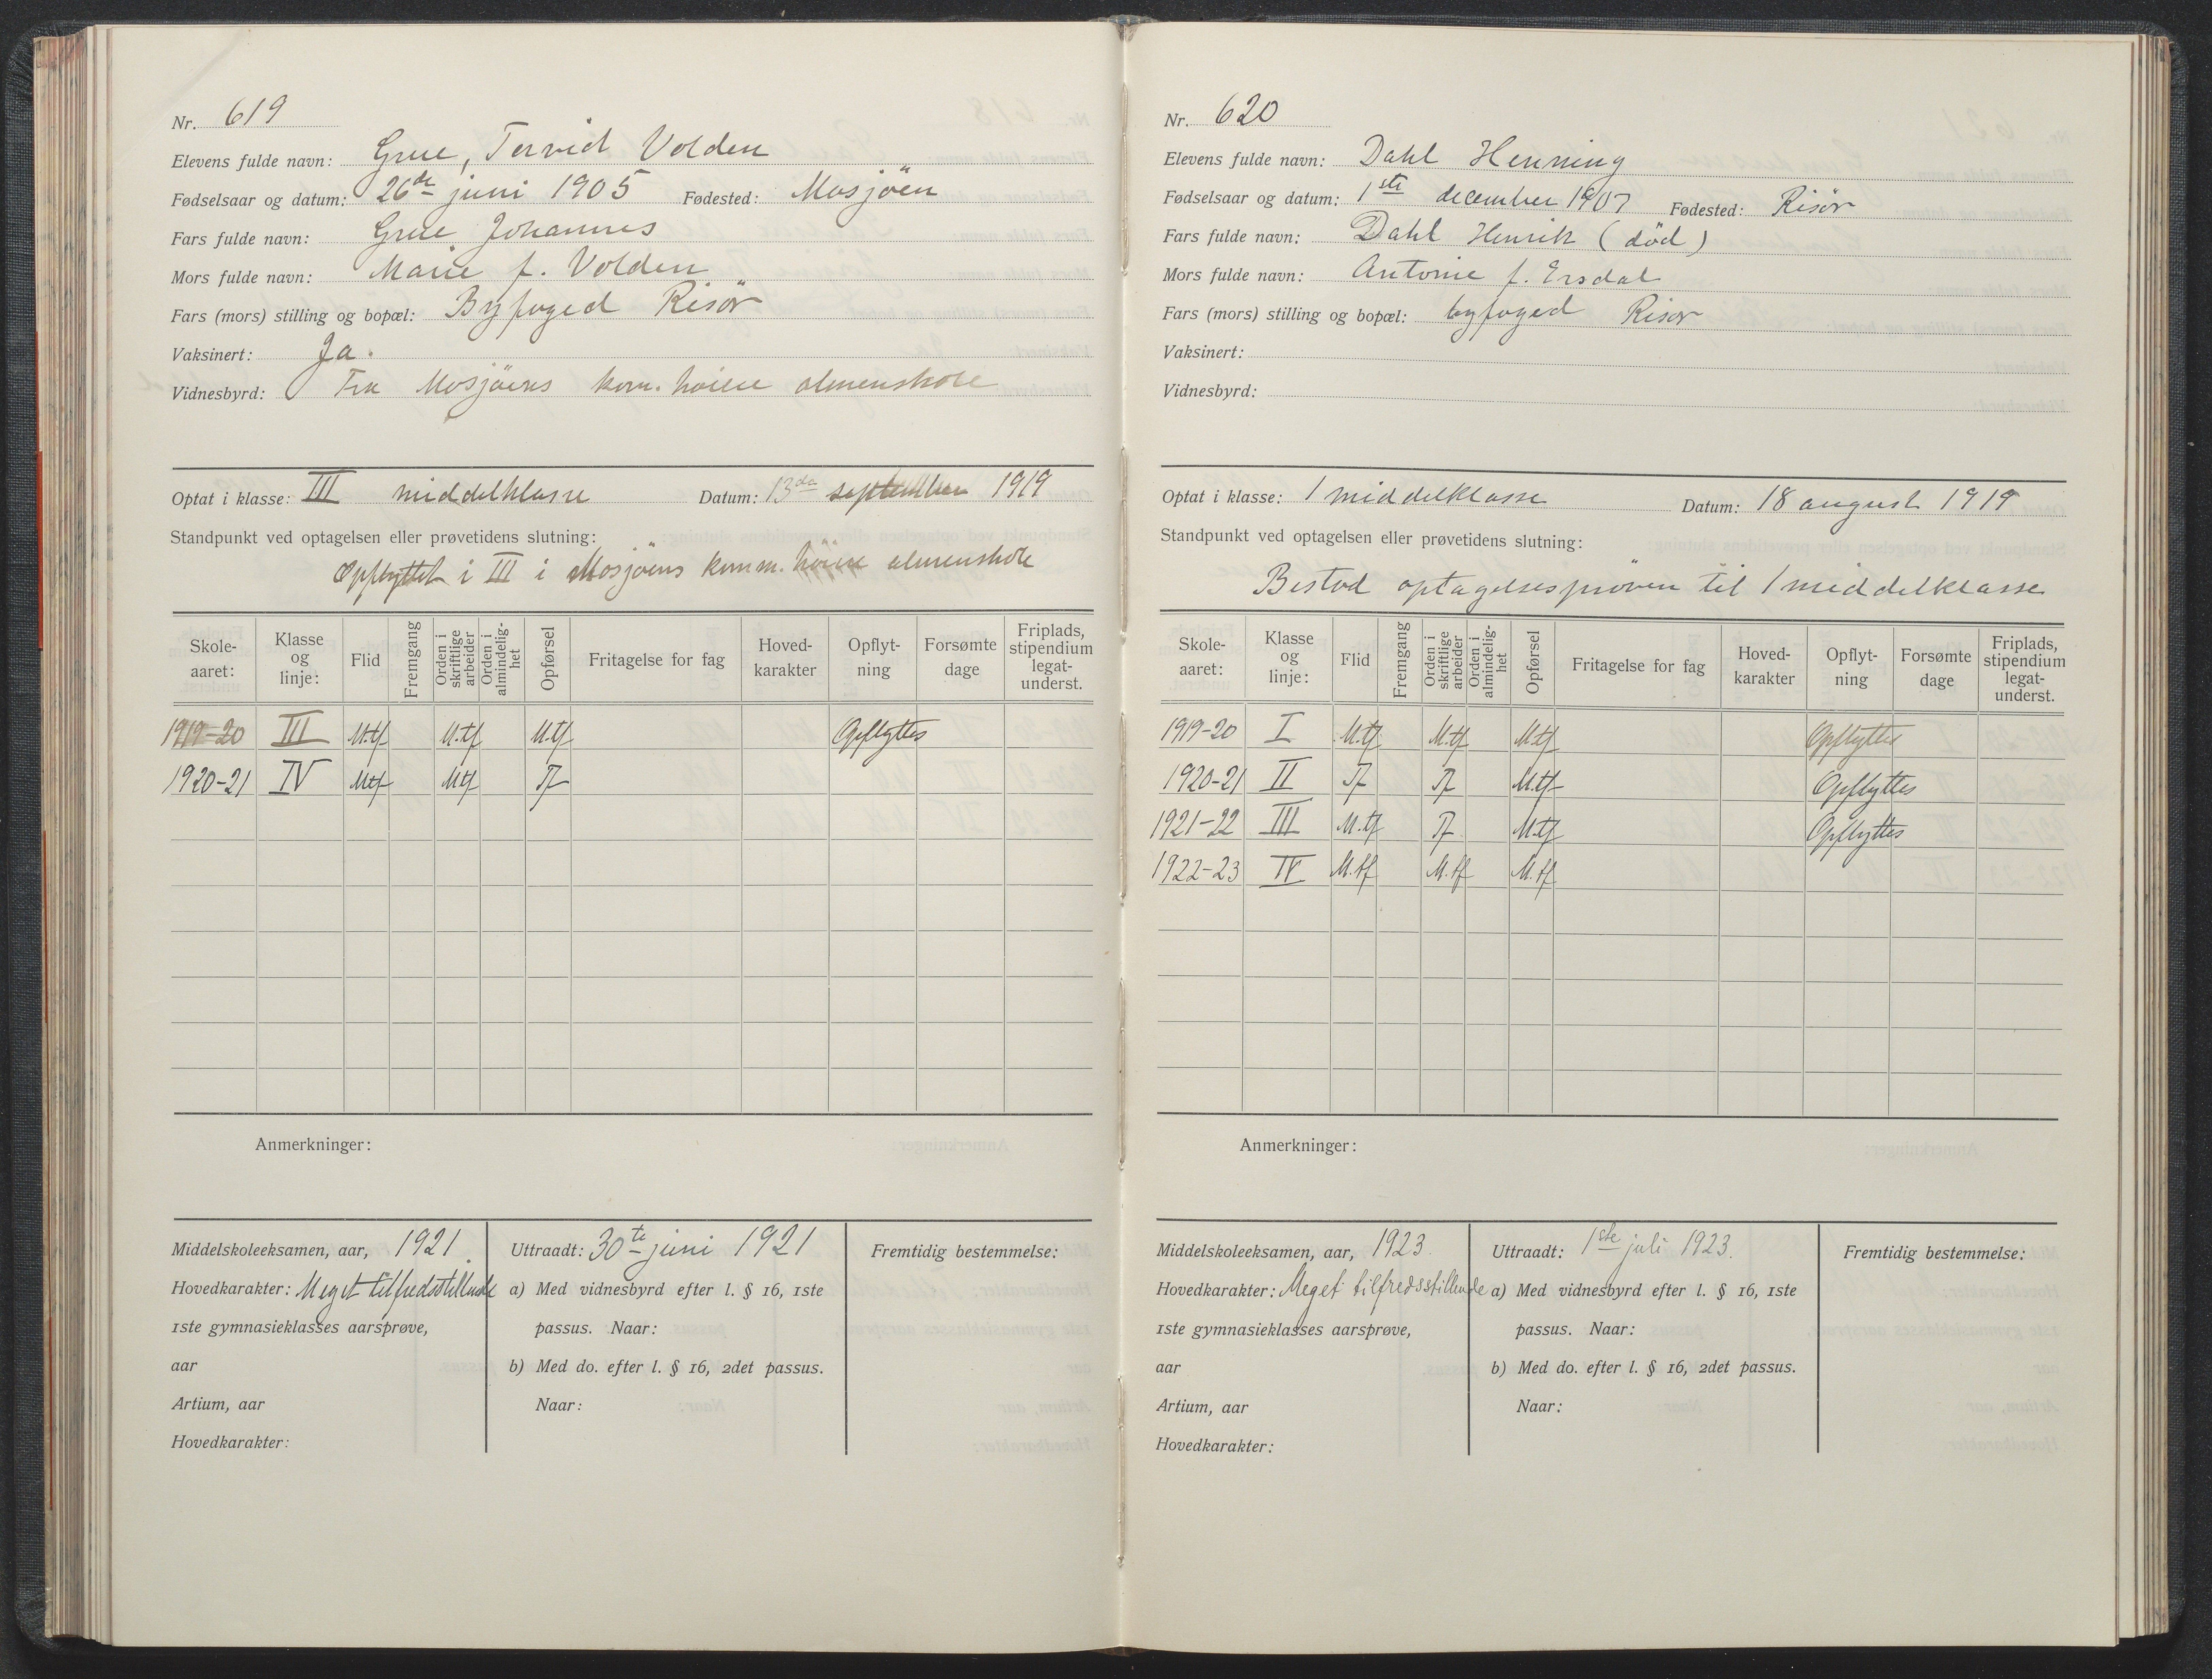 Nr. 619
Elevens fulde navn: Grue, Torvid Volden
Fødselsaar og datum: 26de juni 1905 Fødested: Mosjöen
Fars fulde navn: Grue Johannes
Mors fulde navn: Marie f. Volden
Fars (mors) stilling og bopæl: Byfoged Risör
Vaksinert: Ja.
Vidnesbyrd: Fra Mosjöens kom. höiere almenskole
Optat i klasse: III middelklasse Datum: 13de september 1919
Standpunkt ved optagelsen eller prøvetidens slutning:
Opflyttet i III i Mosjöens komm. höiere almenskole
Skole-aaret: Klasse og linje: Flid Fremgang Orden i skriftlige arbeider Orden i almindelig-het Opførsel Fritagelse for fag Hoved-karakter Opflyt-ning Forsømte dage Friplads, stipendium legat-underst.
1919-20 III M.tf M.tf M.tf Opflyttes
1920-21 IV Mtf Mtf Tf
Anmerkninger:
Middelskoleeksamen, aar, 1921
Hovedkarakter: Meget tilfredsstillende
1ste gymnasieklasses aarsprøve,
aar
Artium, aar
Hovedkarakter:
Uttraadt: 30te juni 1921
a) Med vidnesbyrd efter l. § 16, 1ste
passus. Naar:
b) Med do. efter l. § 16, 2det passus.
Naar:
Fremtidig bestemmelse:
Nr. 620
Elevens fulde navn: Dahl Henning
Fødselsaar og datum: 1ste december 1907 Fødested: Risör
Fars fulde navn: Dahl Henrik (död)
Mors fulde navn: Antonie f. Ersdal
Fars (mors) stilling og bopæl: byfoged Risör
Vaksinert:
Vidnesbyrd:
Optat i klasse: 1 middelklasse Datum: 18 august 1919
Standpunkt ved optagelsen eller prøvetidens slutning:
Bestod optagelsespröven til 1 middelklasse
Skole-aaret: Klasse og linje: Flid Fremgang Orden i skriftlige arbeider Orden i almindelig-het Opførsel Fritagelse for fag Hoved-karakter Opflyt-ning Forsømte dage Friplads, stipendium legat-underst.
1919-20 I M.tf M.tf M.tf Opflyttes
1920-21 II Tf Tf M.tf Opflyttes
1921-22 III M.tf Tf M.tf Opflyttes
1922-23 IV M.tf M.tf M.tf
Anmerkninger:
Middelskoleeksamen, aar, 1923.
Hovedkarakter: Meget tilfredsstillende
1ste gymnasieklasses aarsprøve,
aar
Artium, aar
Hovedkarakter:
Uttraadt: 1ste juli 1923.
a) Med vidnesbyrd efter l. § 16, 1ste
passus. Naar:
b) Med do. efter l. § 16, 2det passus.
Naar:
Fremtidig bestemmelse: